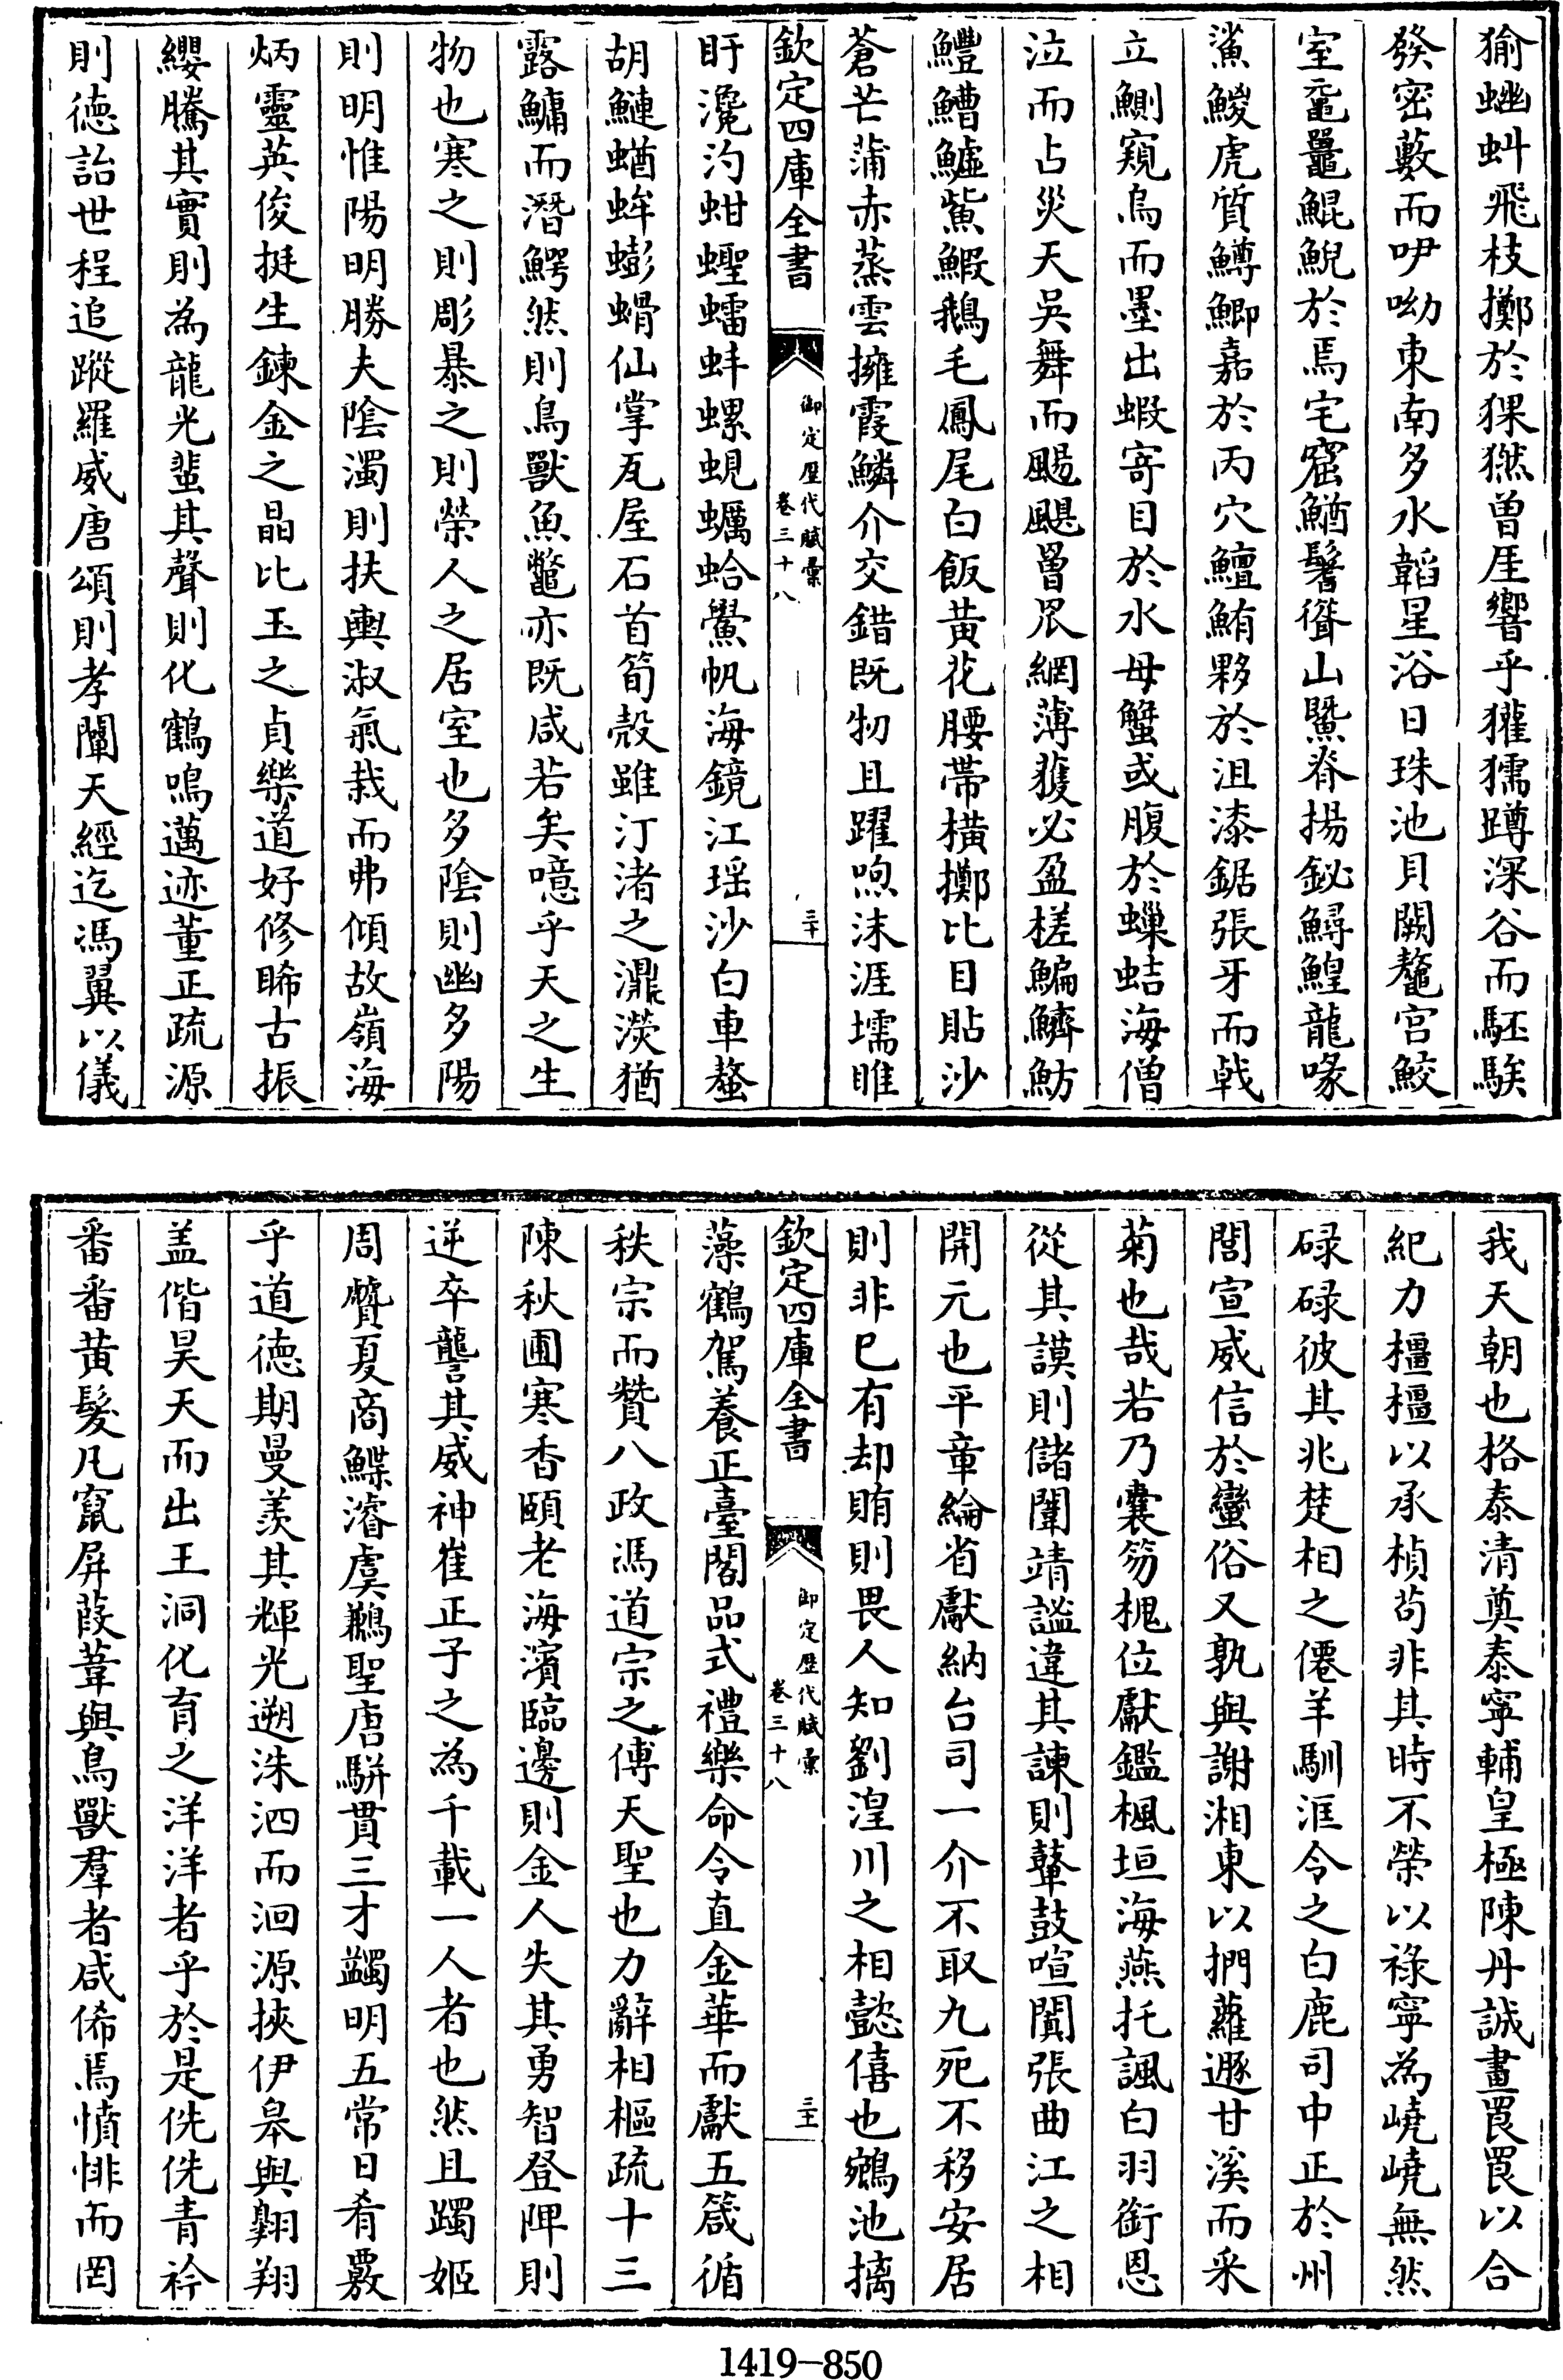 㺄蚴虯飛枝擲於猓㹱曽厓響乎玃獳蹲深谷而駓騃
發密藪而吚呦東南多水韜星浴日珠池貝闕鼇宫鮫
室黿鼉鯤鯢於焉宅窟鰌鬐聳山鱀脊揚鉍鱘鰉龍喙
鯊鯼虎質鱒鯽嘉於丙穴鱣鮪夥於沮漆鋸張牙而㦸
立鰂窺烏而墨出蝦寄目於水母蟹或腹於蠊蛣海僧
泣而占災天吳舞而颺颶罾罛網薄獲必盈槎鯿鱭魴
鱧鰽鱸鮆鰕鵝毛鳳尾白飯黄花腰帶横擲比目貼沙
蒼芒蒲赤蒸雲擁霞鱗介交錯既牣且躍喣沫涯壖睢
欽定四庫全書
御定歴代賦彙
卷三十八
三十
盱瀺汋蚶蟶蠕蚌螺蜆蠣蛤鱟帆海鏡江瑶沙白車螯
胡鰱蝤蛑蟛蝟仙掌瓦屋石首筍殻雖汀渚之濎濙猶
露鱅而潛鰐然則鳥獸魚鼈亦既咸若矣噫乎天之生
物也寒之則彫暴之則榮人之居室也多陰則幽多陽
則明惟陽明勝夫陰濁則扶輿淑氣栽而弗傾故嶺海
炳靈英俊挺生鍊金之晶比玉之貞樂道好修睎古振
纓騰其實則為龍光蜚其聲則化鶴鳴邁迹董正疏源
則徳詒世程追蹤羅威唐頌則孝闡天經迄馮翼以儀
我天朝也格泰清奠泰寧輔皇極陳丹誠畫罠罠以合
紀力橿橿以承楨茍非其時不榮以祿寧為嶢嶢無然
碌碌彼其兆楚相之僊羊馴洭令之白鹿司中正於州
閭宣威信於蠻俗又孰與謝湘東以捫蘿遯甘溪而采
菊也哉若乃囊笏槐位獻鑑楓垣海燕托諷白羽銜恩
從其謨則儲闈靖謐違其諫則鼙鼓喧闐張曲江之相
開元也平章綸省獻納台司一介不取九死不移安居
則非已有却賄則畏人知劉湟川之相懿僖也鵷池摛
欽定四庫全書
御定歴代賦彙
卷三十八
三十一
藻鶴駕養正臺閣品式禮樂命令直金華而獻五箴循
秩宗而贊八政馮道宗之傅天聖也力辭相樞疏十三
陳秋圃寒香頤老海濱臨邊則金人失其勇智登陴則
逆卒讋其威神崔正子之為千載一人者也然且躅姬
周贋夏商鰈濬虞鶼聖唐駢貫三才蠲明五常日肴覈
乎道徳期曼羨其輝光遡洙泗而洄源挾伊臯與翺翔
盖偕昊天而出王洞化育之洋洋者乎於是侁侁青衿
番番黄髪凡竄屏葭葦與鳥獸羣者咸俙焉憤悱而罔
1419-850